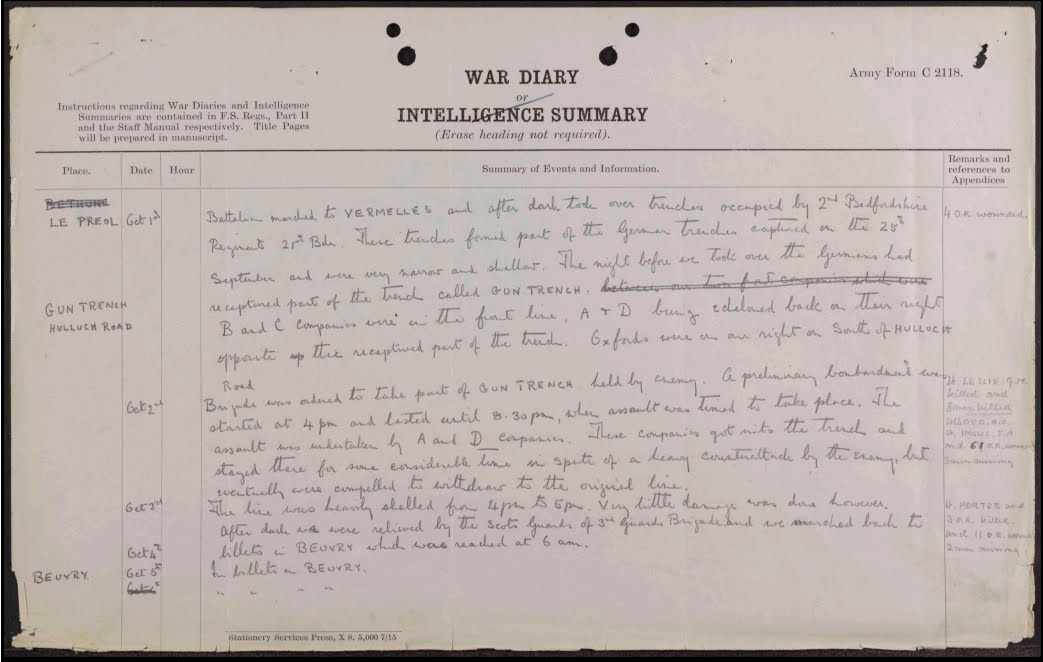 Army Form C 2118.
WAR DIARY
or
INTELLIGENCE SUMMARY
(Erase heading not required).
Instructions regarding War Diaries and Intelligence
Summaries are contained in F.S. Regs., Part II
and the Staff Manual respectively. Title Pages
will be prepared in manuscript.
Place. Date Hour Summary of Events and Information. Remarks and references to Appendices
BETHUNE
LE PREOL Oct 1st Battalion marched to VERMELLES and after dark took over trenches occupied by 2nd Bedfordshire 4 O.R. wounded.
Regiment 21st Bde. These trenches formed part of the German trenches captured on the 25th
September and were very narrow and shallow. The night before we took over the Germans had
recaptured part of the trench called GUN TRENCH. between our two front companies which were
GUN TRENCH
HULLUCH ROAD
B and C Companies were in the front line, A & D being echeloned back on their right
opposite the recaptured part of the trench. Oxfords were on our right on South of HULLUCH
Road
Oct 2nd Brigade was ordered to take part of GUN TRENCH held by enemy. A preliminary bombardment was
started at 4 pm and lasted until 8.30 pm, when assault was timed to take place. The
assault was undertaken by A and D Companies. These companies got into the trench and
stayed there for some considerable time in spite of a heavy counterattack by the enemy, but
eventually were compelled to withdraw to the original line.
Lt. LESLIE
killed and
8 men killed
and 61 O.R. wounded
missing
Oct 3rd The line was heavily shelled from 4 pm to 5 pm. Very little damage was done however.
After dark we were relieved by the Scots Guards of 3rd Guards Brigade and we marched back to
Oct 4th billets in BEUVRY which was reached at 6 am.
Lt. PORTOR and
3 O.R. killed
and 11 O.R. wounded
2 men missing
BEUVRY. Oct 5th In billets in BEUVRY.
" " " "
Stationery Services Press, X 8. 5,000 7/15